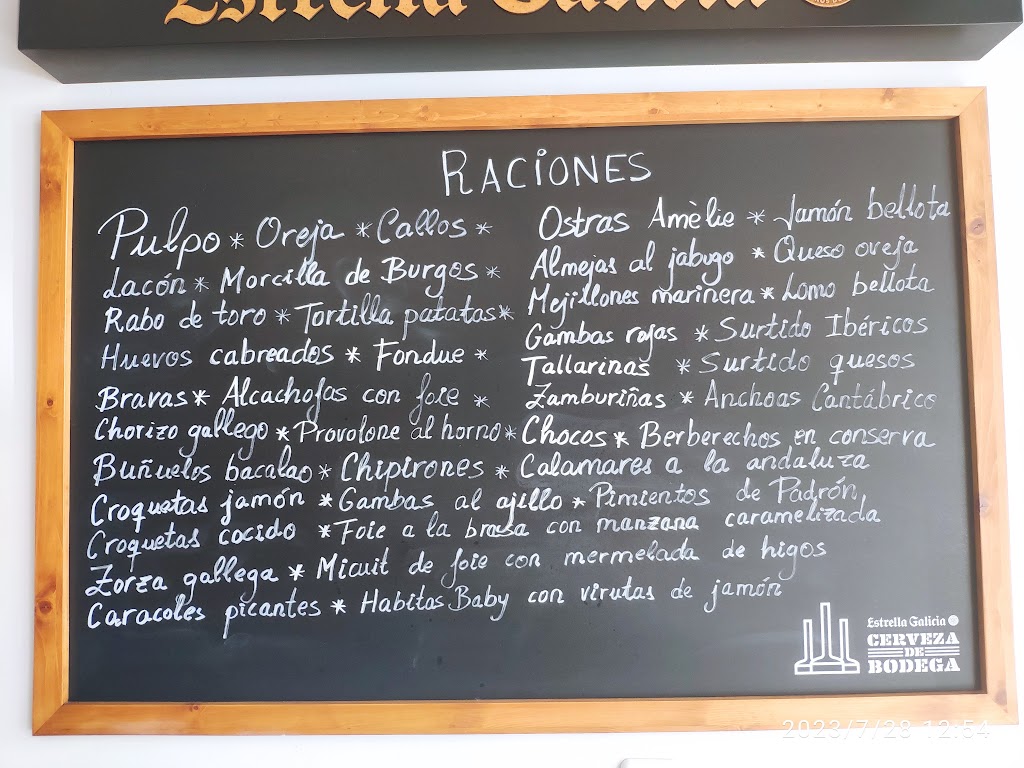 Estrella Galicia
RACIONES
Pulpo * Oreja * Callos * Ostras Amèlie * Jamón bellota
Lacón * Morcilla de Burgos * Almejas al jabugo * Queso oveja
Rabo de toro * Tortilla patatas * Mejillones marinera * Lomo bellota
Huevos cabreados * Fondue * Gambas rojas * Surtido Ibéricos
Bravas * Alcachofas con foie * Tallarinas * Surtido quesos
Zamburiñas * Anchoas Cantábrico
Chorizo gallego * Provolone al horno * Chocos * Berberechos en conserva
Buñuelos bacalao * Chipirones * Calamares a la andaluza
Croquetas jamón * Gambas al ajillo * Pimientos de Padrón
Croquetas cocido * Foie a la brasa con manzana caramelizada
Zorza gallega * Micuit de foie con mermelada de higos
Caracoles picantes * Habitas Baby con virutas de jamón
Estrella Galicia
CERVEZA
DE
BODEGA
2023/7/28 12:54